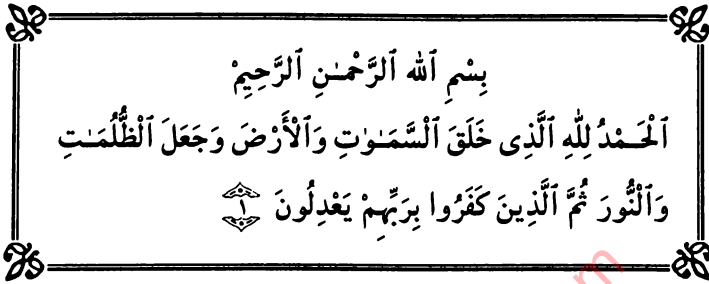 بِسْمِ ٱللهِ ٱلرَّحْمَـٰنِ ٱلرَّحِيْمِ
ٱلْحَـمْدُ لِلَّهِ ٱلَّذِى خَلَقَ ٱلْسَّمَـٰوَٰتِ وَٱلْأَرْضَ وَجَعَلَ ٱلْظُّلُمَـٰتِ
وَٱلْنُّورَ ثُمَّ ٱلَّذِينَ كَفَرُوا بِرَبِّهِمْ يَعْدِلُونَ ١